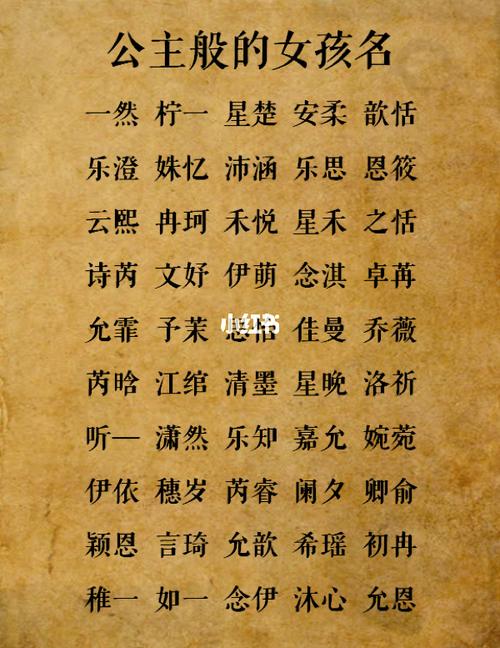 公主般的女孩名
一然 柠一 星楚 安柔 歆恬
乐澄 姝忆 沛涵 乐思 恩筱
云熙 冉珂 禾悦 星禾 之恬
诗芮 文妤 伊萌 念淇 卓苒
允霏 予茉 佳曼 乔薇
小红书
芮晗 江绾 清墨 星晚 洛祈
听一 潇然 乐知 嘉允 婉菀
伊依 穗岁 芮睿 阑夕 卿俞
颖恩 言琦 允歆 希瑶 初冉
稚一 如一 念伊 沐心 允恩